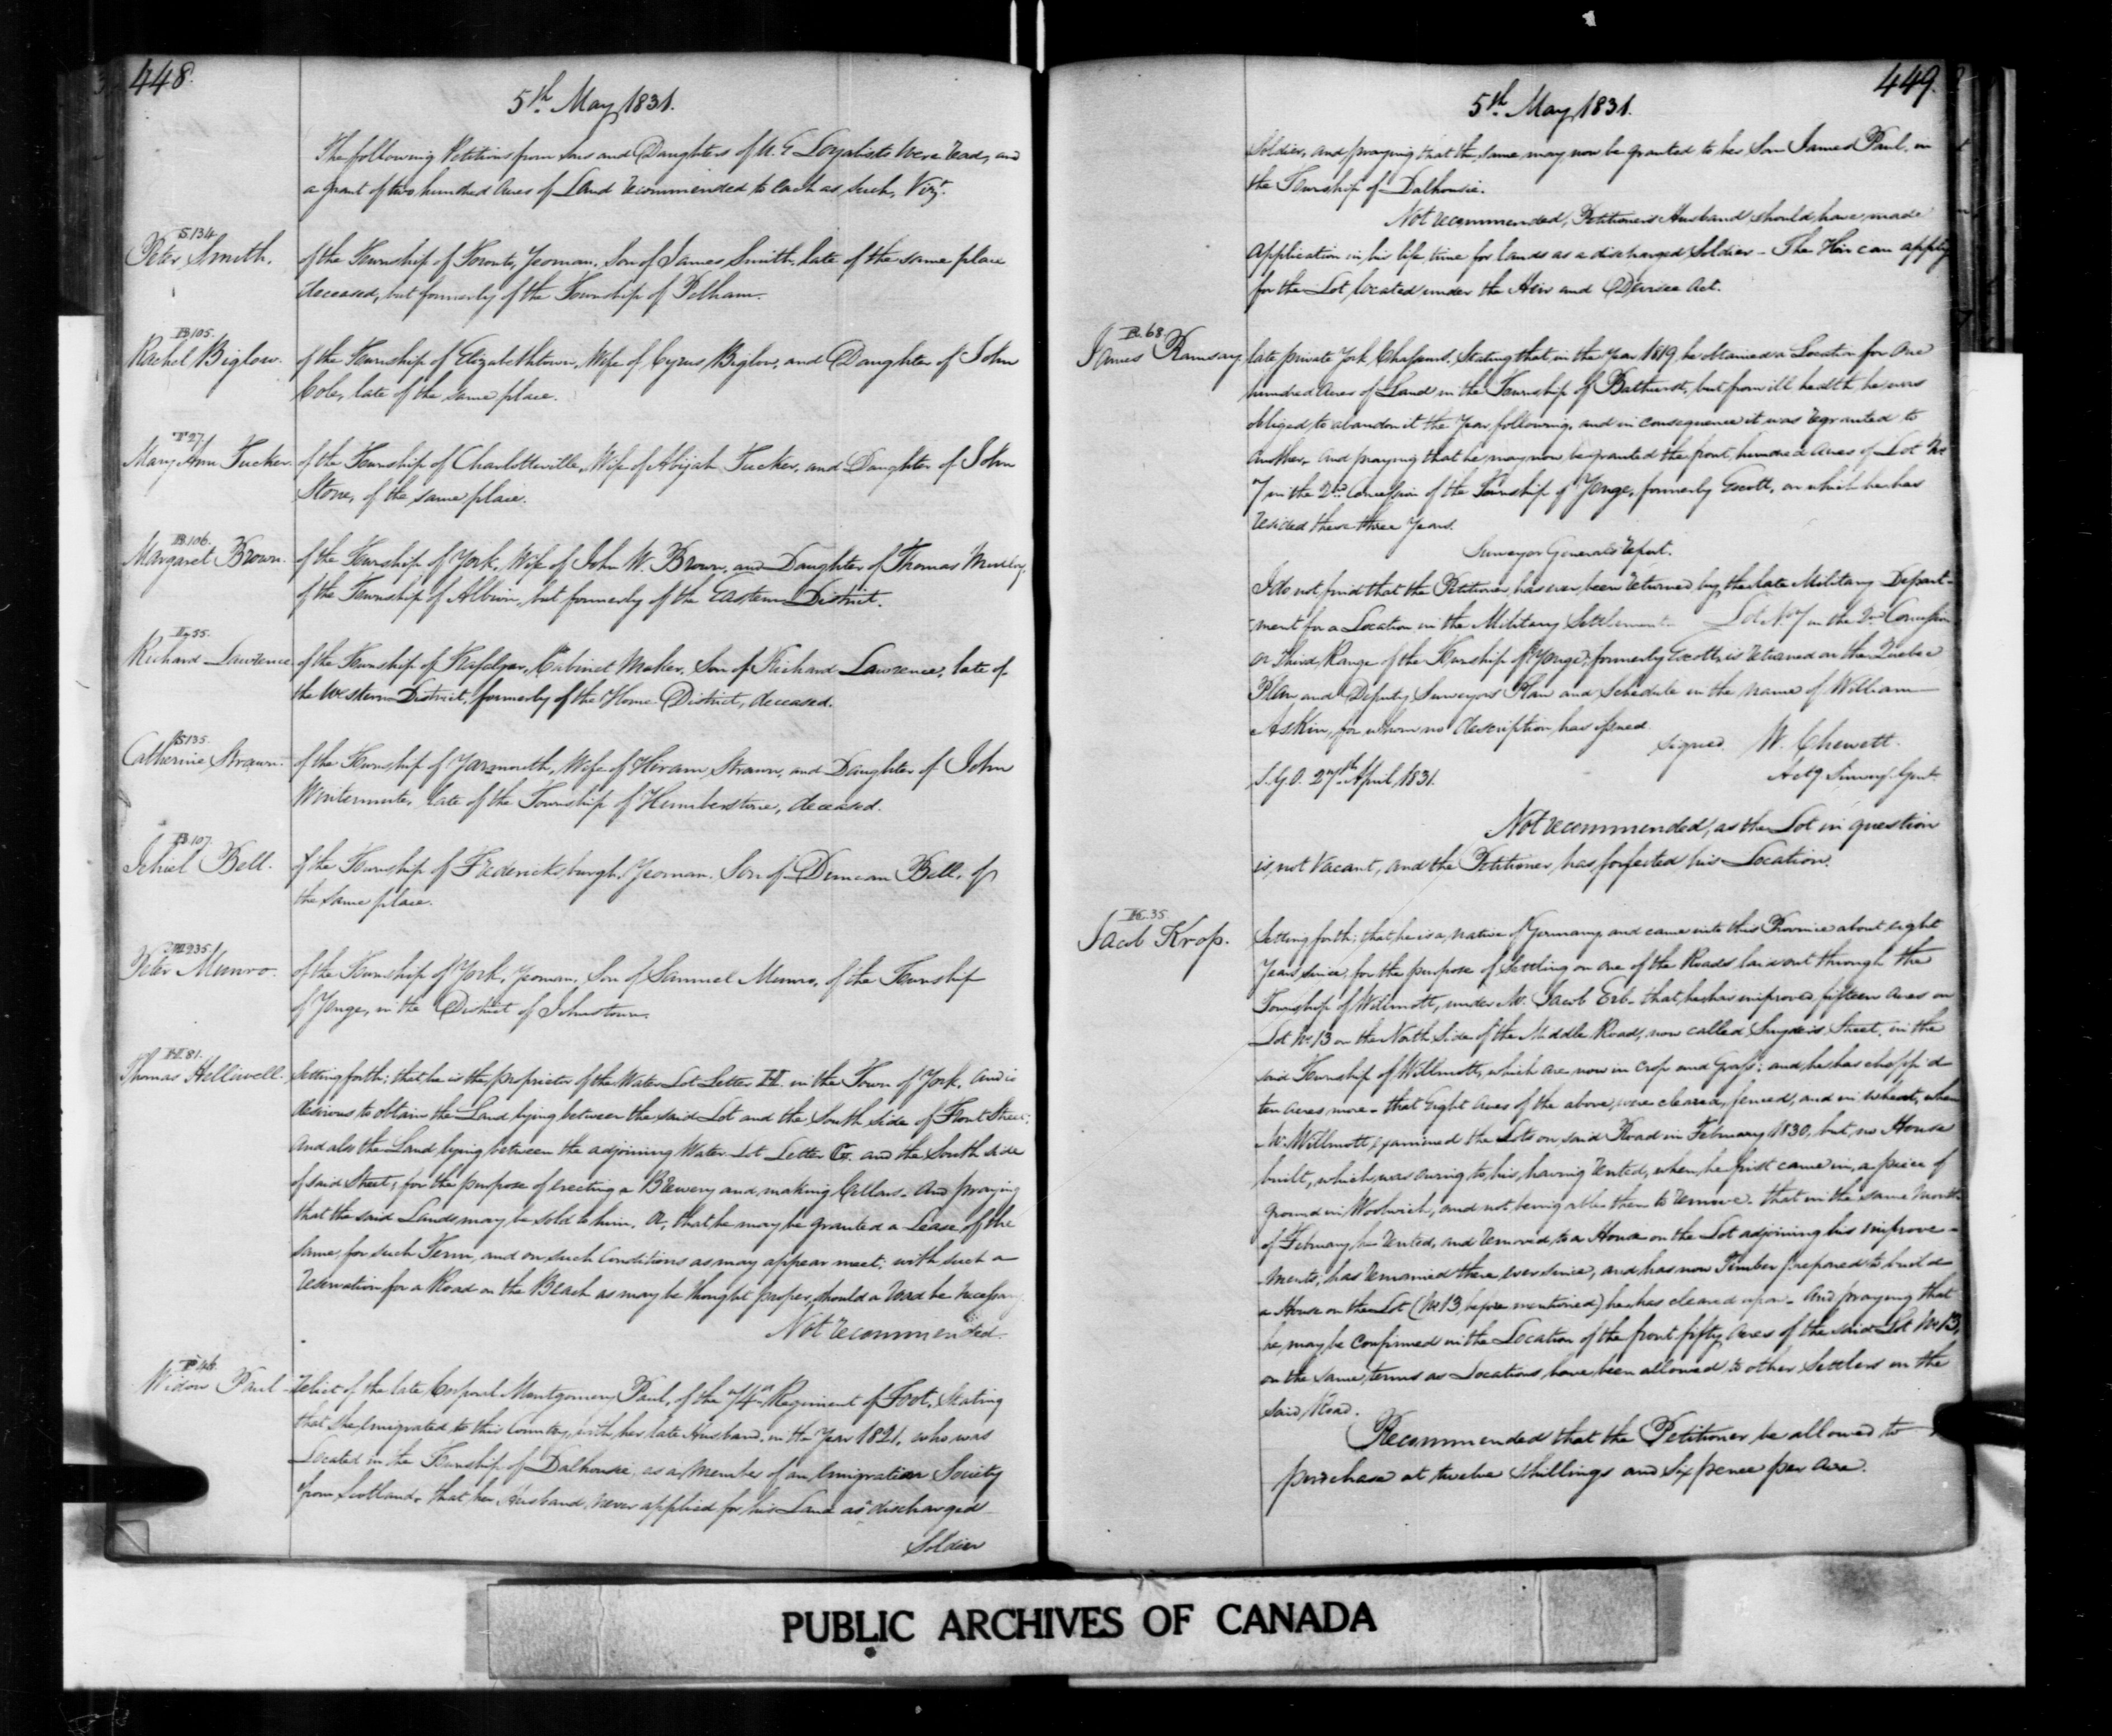 448.
5th. May, 1831.
The following Petitions from Sons and Daughters of U. E Loyalists were read, and
a grant of two hundred acres of Land recommended to each as such, Vizt.
S 134
Peter Smith. of the Township of Toronto, Yeoman, Son of James Smith, late of the same place
deceased, but formerly of the Township of Pelham.
B 105.
Rachel Biglow. of the Township of Elizabethtown, Wife of Cyrus Biglow, and Daughter of John
Cole, late of the same place.
T 27
Mary Ann Tucker. of the Township of Charlotteville, Wife of Abijah Tucker, and Daughter of John
Stone, of the same place.
B 106.
Margaret Brown. of the Township of York, Wife of John W. Brown, and Daughter of Thomas
of the Township of Albion, but formerly of the Eastern District.
L 55.
Richard Lawrence of the Township of Trafalgar, Cabinet Maker, Son of Richard Lawrence, late of
the Western District, formerly of the Home District, deceased.
S 135.
Catherine Strawn. of the Township of Yarmouth, Wife of Hiram Strawn, and Daughter of John
Wintermute, late of the Township of Humberstone, deceased.
B 107.
Jehiel Bell. of the Township of Fredericksburgh, Yeoman. Son of Duncan Bell, of
the same place.
M 235
Peter Munro. of the Township of York, Yeoman, Son of Samuel Munro, of the Township
of Yonge, in the District of Johnstown.
H 81.
Thomas Helliwell. Setting forth; that he is the proprietor of the Water Lot Letter H. in the Town of York. And is
desirous to obtain the Land lying between the said Lot and the South side of Front Street;
And also the Land lying between the adjoining Water Lot Letter G. and the South side
of said Street; for the purpose of erecting a Brewery and making Cellars. And praying
that the said Lands may be sold to him, Or, that he may be granted a Lease of the
same, for such Term, and on such Conditions as may appear meet; with such a
reservation for a Road on the Beach as may be thought proper, should a road be necessary
Not recommended.
P 46.
Widow Paul - Relict of the late Corporal Montgomery Paul, of the 74th Regiment of Foot, Stating
that she emigrated to this Country with her late Husband, in the Year 1821, who was
Located in the Township of Dalhousie, as a Member of an Emigration Society
from Scotland, that her Husband never applied for his Land as discharged
Soldier
449.
5th. May, 1831.
Soldier, and praying that the same may now be granted to her Son James Paul, in
the Township of Dalhousie.
Not recommended, Petitioners Husband should have made
application in his life time for lands as a discharged Soldier - The Heir can apply
for the Lot located under the Heir and Devisee Act.
R. 68
James Ramsay, late private York Chasseurs. Stating that in the Year 1819 he obtained a Location for One
hundred Acres of Land in the Township of Bathurst, but from ill health he was
obliged to abandon it the Year following, and in consequence it was regranted to
another. And praying that he may now be granted the front hundred Acres of Lot No
7 in the 2nd Concession of the Township of Yonge, formerly Escott, on which he has
resided these three Years.
Surveyor General's Report.
I do not find that the Petitioner has ever been returned by the late Military Depart-
-ment for a Location in the Military Settlement. Lot No. 7 in the 2nd Concession
or Third Range of the Township of Yonge, formerly Escott, is returned on the Quebec
Plan, and Deputy Surveyors Plan and Schedule in the name of William
Askin, for whom no description has issued.
Signed W. Chewett.
S. G. O. 27th April, 1831. Actg Survey. Genl.
Not recommended, as the Lot in question
is not Vacant, and the Petitioner has forfeited his Location.
K. 35
Jacob Krop. Setting forth; that he is a native of Germany, and came into this Province about eight
Years since, for the purpose of Settling on one of the Roads laid out through the
Township of Willmott, under Mr. Jacob Erb. that he has improved fifteen acres on
Lot No. 13 on the North side of the Middle Road, now called Snyders Street, in the
said Township of Willmott, which are now in Crop and Grass; and he has chopp'd
ten acres more. that Eight Acres of the above, were cleared, fenced, and in wheat, when
Mr. Willmott examined the Lots on said Road in February 1830, but no House
built, which was owing to his having rented, when he first came in, a piece of
ground in Woolwich, and not being able then to remove. that in the same Month
of February he rented, and removed to a House on the Lot adjoining his improve-
-ments; has remained there ever since, and has now Timber prepared to build
a House on the Lot (No 13, before mentioned) he has cleared upon. And praying that
he may be confirmed in the Location of the front fifty Acres of the said Lot No 13,
on the same terms as Locations have been allowed to other Settlers on the
said Road.
Recommended that the Petitioner be allowed to
purchase at twelve shillings and six pence per Acre.
PUBLIC ARCHIVES OF CANADA